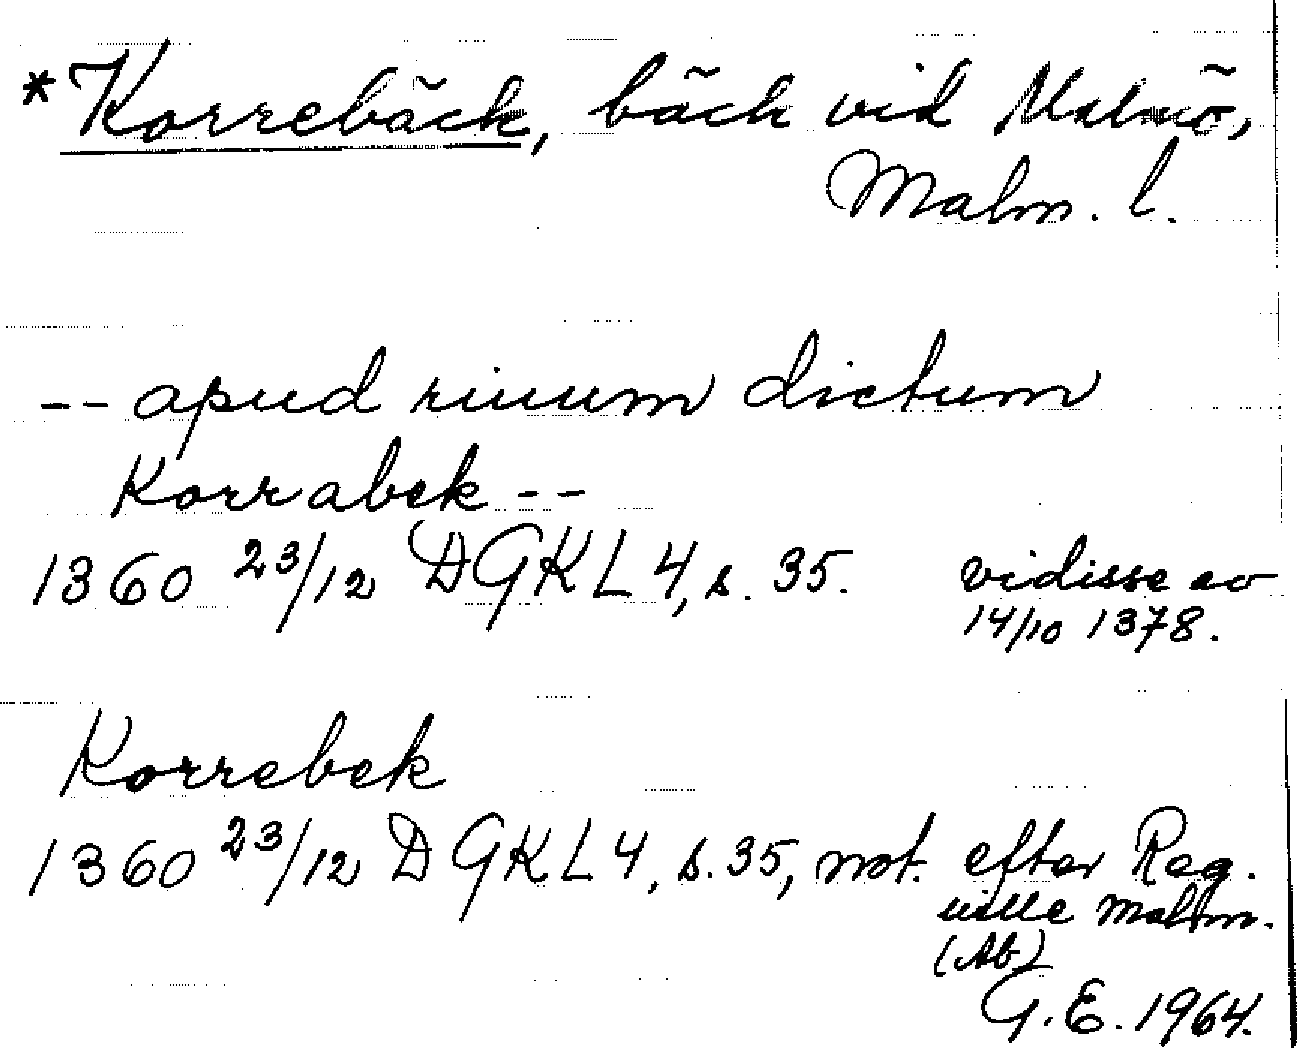 *Korrebäck, bäck vid Malmö,
Malm. l.
-- apud riuum dictum
Korrabek --
1360 23/12 DGKL4, s. 35. vidisse av
14/10 1378.
Korrebek
1360 23/12 DGKL4, s. 35, not. efter Reg.
uille Malm.
(Ab)
G.E. 1964.